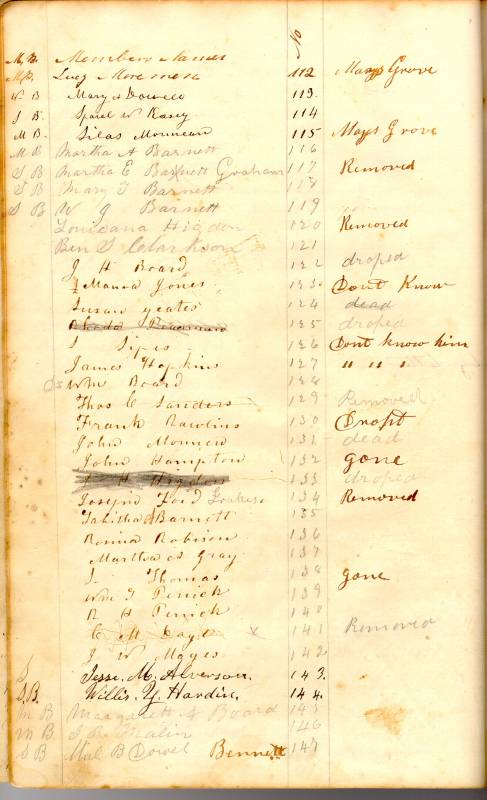 M, B. Members Names No
M B. Lucy Moremen 112 Mays Grove
W B Mary A Dowell 113.
S B. W Kasey 114
M B. Silas Mormean 115 Mays Grove
M B Martha A Barnett 116
S B Martha E Barnett Graham 117 Removed
S B Mary T Barnett 118
S B W J Barnett 119
Louisana Higdon 120 Removed
Ben S Clarkson 121
J H Board 122 droped
Manda Jones 123. Dont Know
Susan yeates 124 dead
125 droped
S Sipes 126 Dont know him
James Hopkins 127 " " "
Wm Board 128
Thos C Sanders 129 Removed
Frank Rawlins 130 Dropt
John 131 dead
John Hampton 132 gone
H Higdon 133 droped
Joseph Ford 134 Removed
Tabitha Barnett 135
Robison 136
Martha Gray 137
Thomas 138 gone
Wm T Penick 139
R H Penick 140
C M Days x 141 Removed
J W Mayes 142
S Jesse. M. Alverson. 143.
S.B. Willis. Y. Hardin. 144.
M B Margarett A Board 145
M B 146
S B Mal B Dowel Bennett 147